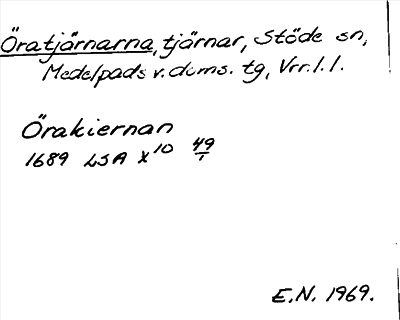 Öratjärnarna, tjärnar, Stöde sn,
Medelpads v. doms. tg, Vrr. l. l.
Örakiernan
1689 LSA X 10 49/1
E.N. 1969.